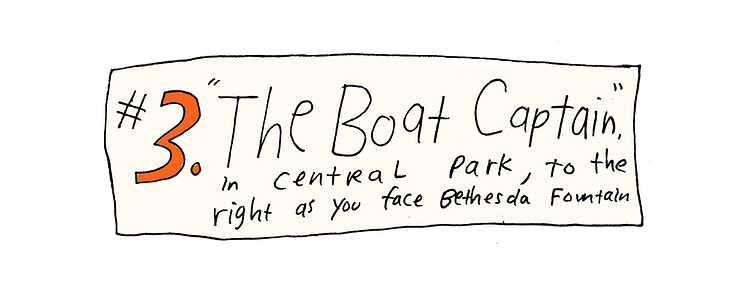 #3. "The Boat Captain,"
in CENTRAL PARK, to the
right as you face Bethesda Fountain